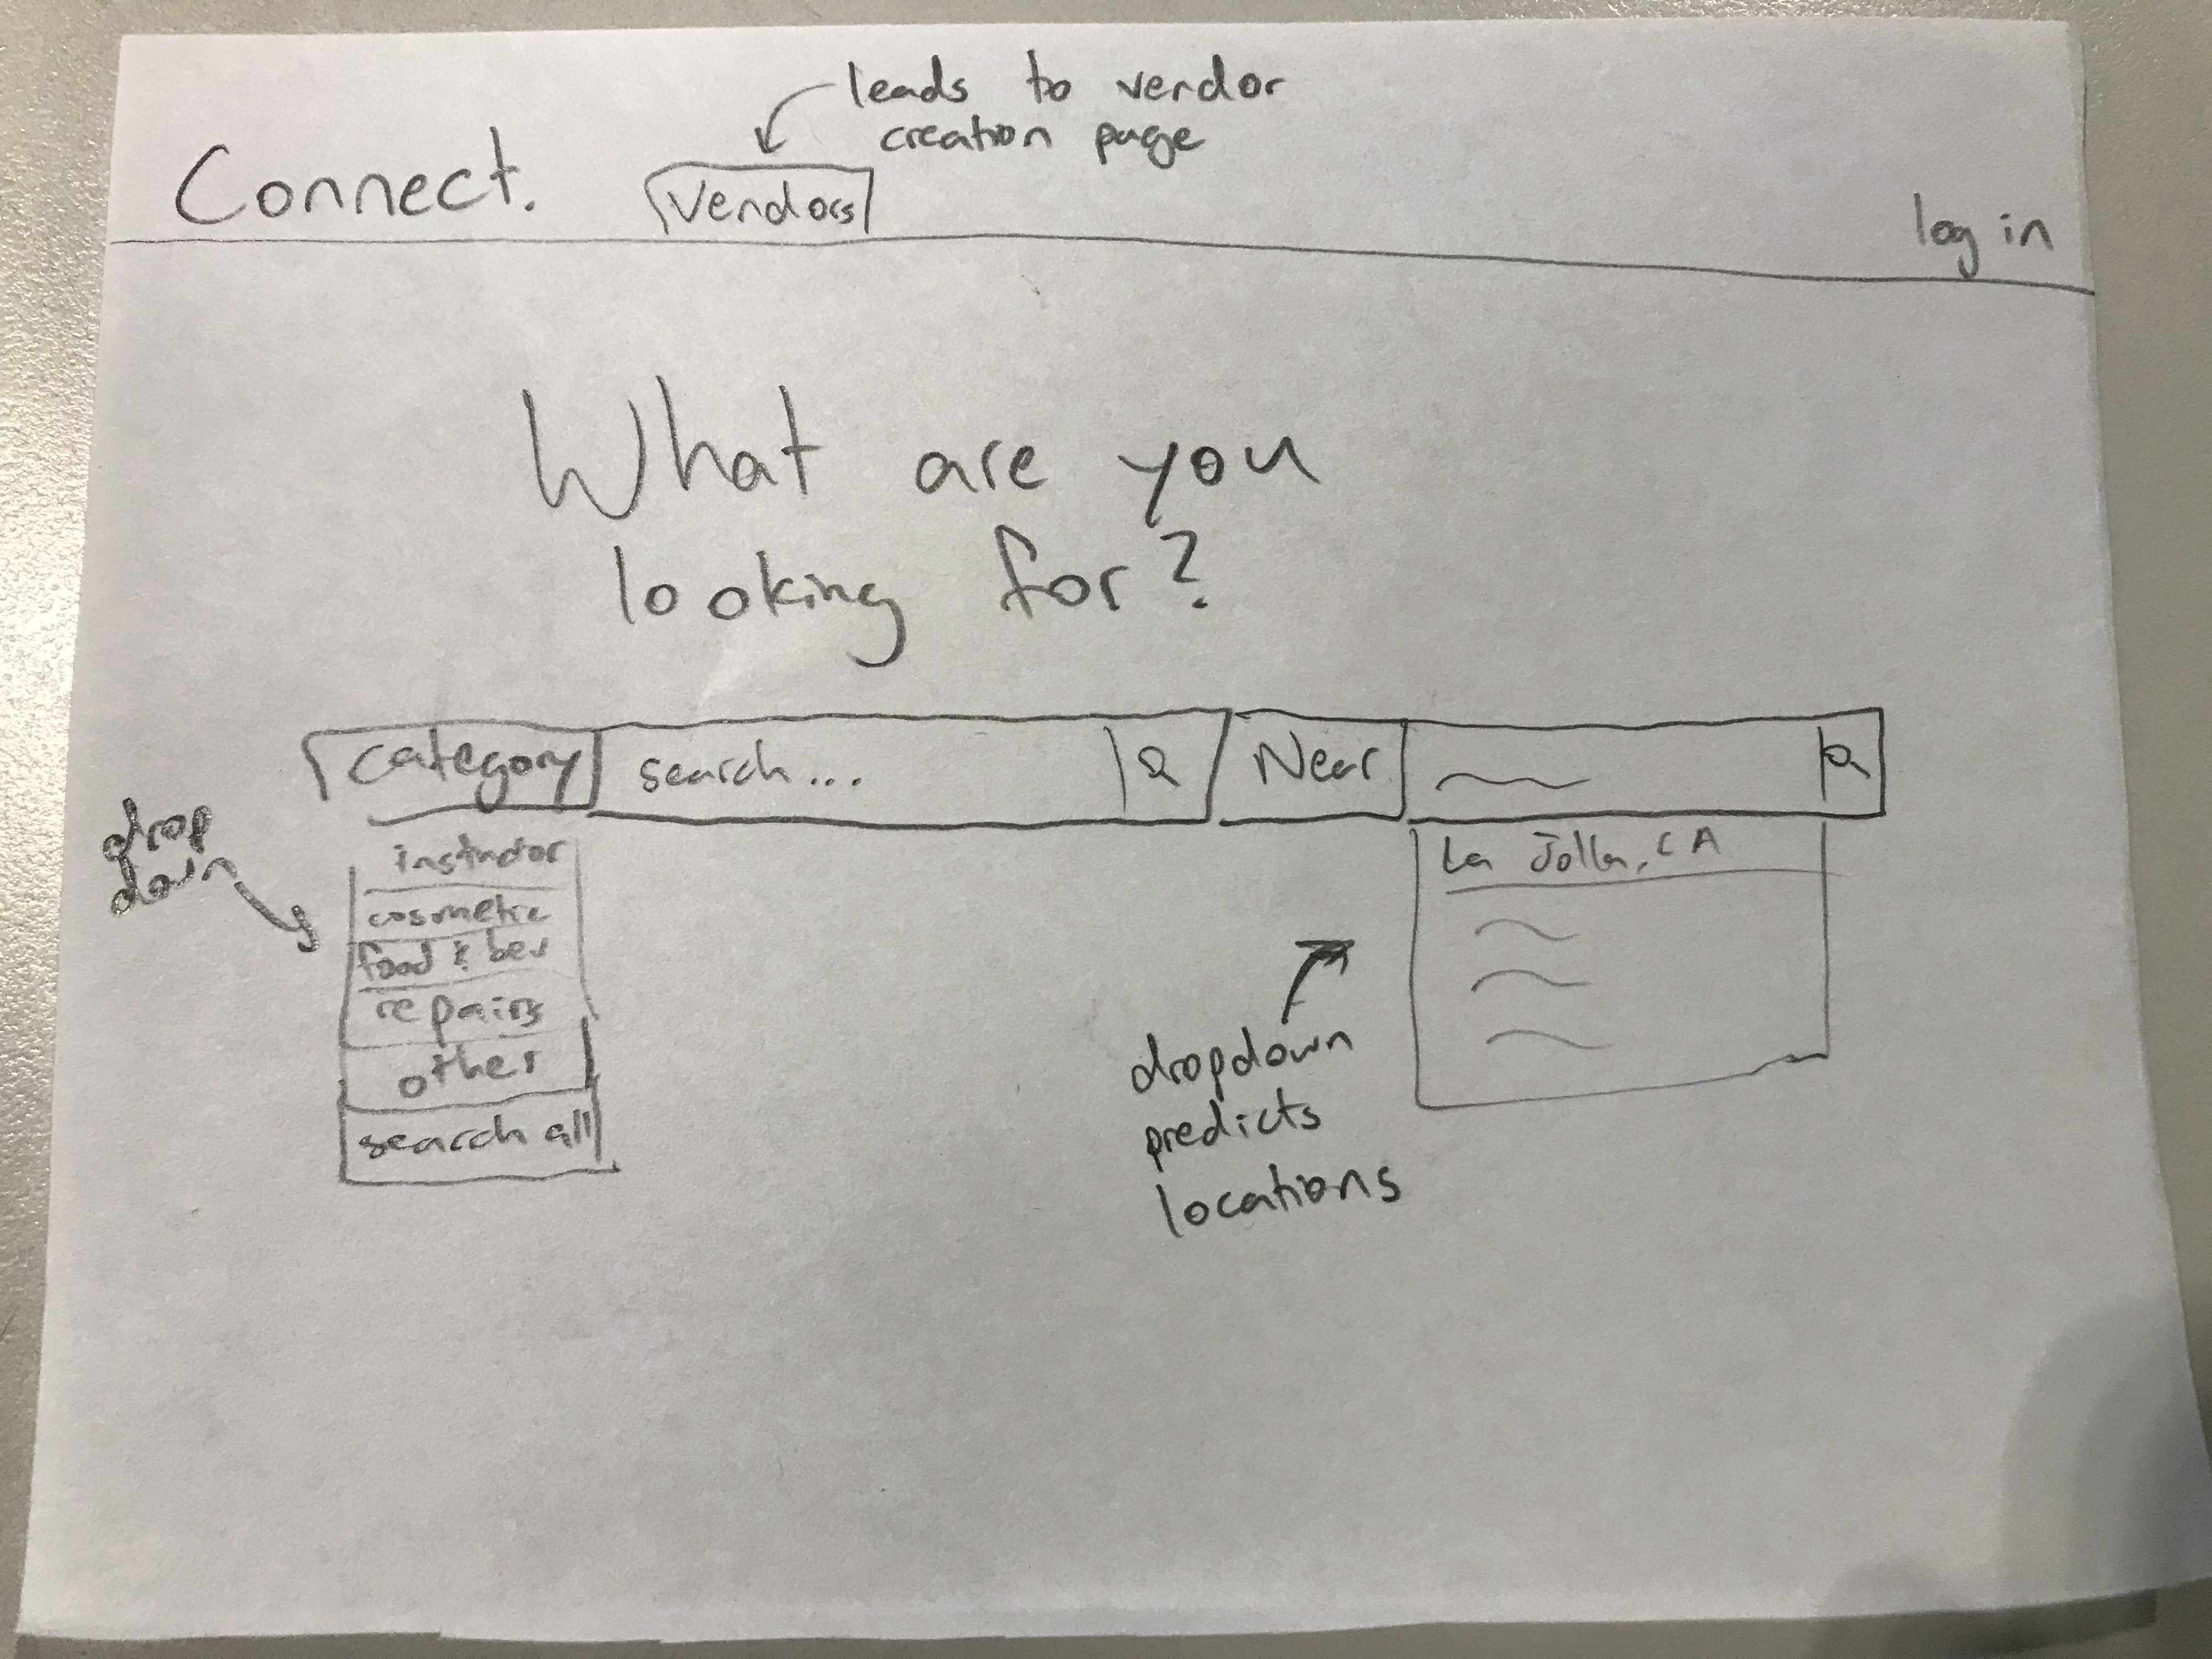 leads to vendor
creation page
Connect.
Vendors
log in
What are you
looking for?
category
search...
Near
drop
down
instructor
cosmetic
food & bev
repairs
other
search all
La Jolla, CA
dropdown
predicts
locations